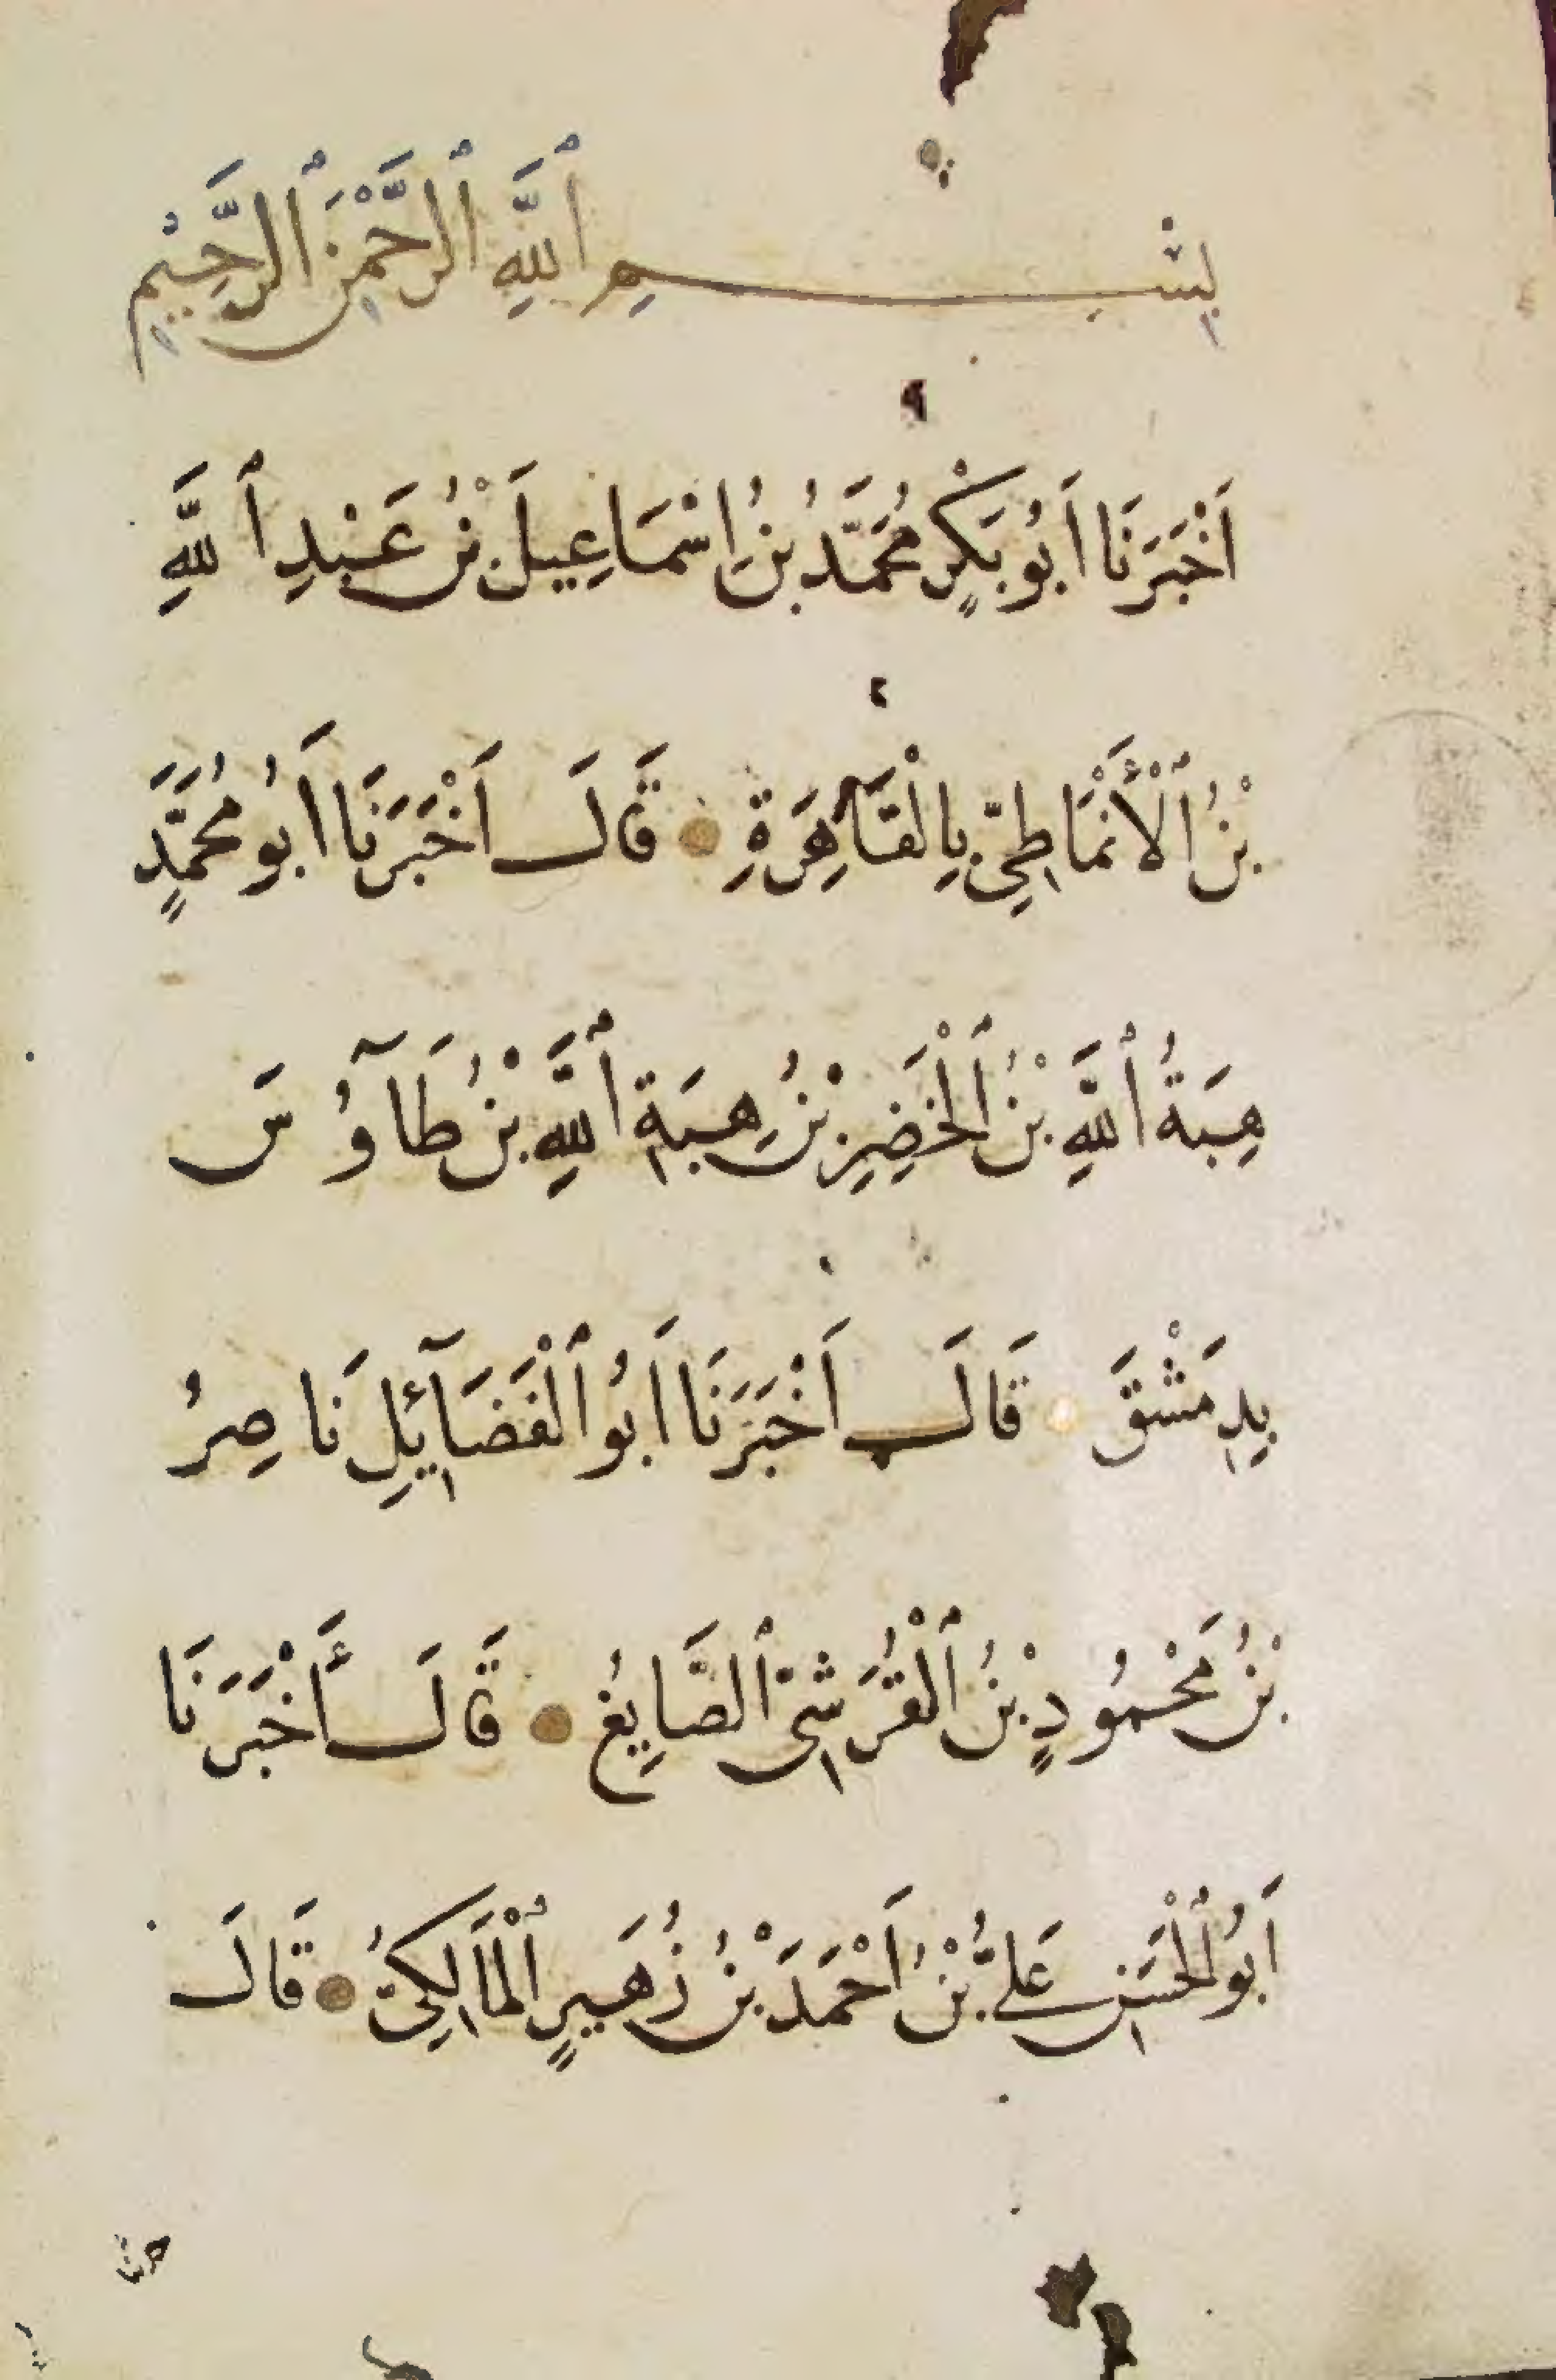 بِسْمِ ٱللَّهِ ٱلرَّحْمَنِ ٱلرَّحِيْمِ
اَخْبَرَنَا اَبُو بَكْرٍ مُحَمَّدُ بْنُ اِسْمَاعِيلَ بْنُ عَبْدِ ٱللَّهِ
بْنُ ٱلْأَنْمَاطِيِّ بِالْقَاهِرَةِ قَالَ اَخْبَرَنَا اَبُو مُحَمَّدٍ
هِبَةُ ٱللَّهِ بْنُ ٱلْخَضِرِ بْنُ هِبَةِ ٱللَّهِ بْنُ طَآوُسَ
بِدِمَشْقَ قَالَ اَخْبَرَنَا اَبُو ٱلْفَضَآئِلِ نَاصِرُ
بْنُ مَحْمُودٍ بْنُ ٱلْقُرَشِيِّ ٱلصَّايِغُ قَالَ أَخْبَرَنَا
اَبُو ٱلْحَسَنِ عَلِيُّ بْنُ اَحْمَدَ بْنُ زُهَيرٍ ٱلْمَالِكِيُّ قَالَ